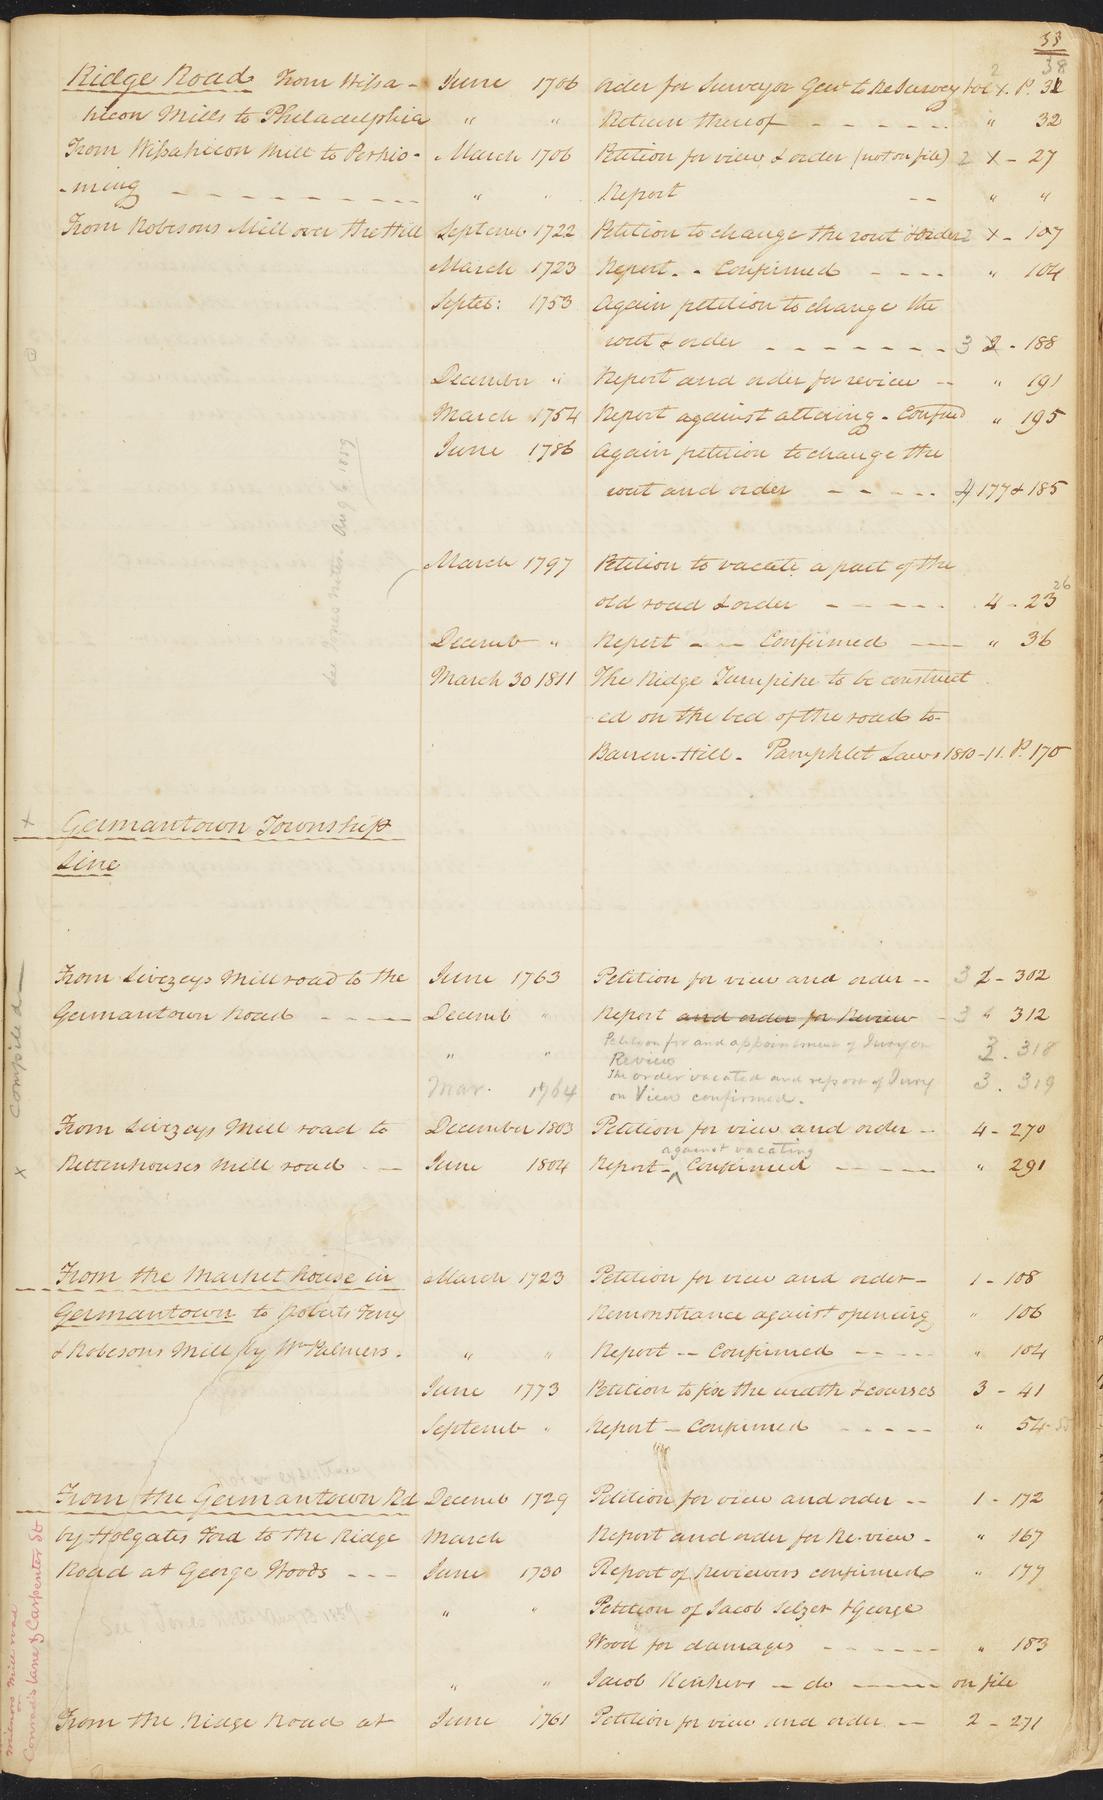 33
38
Ridge Road From Wissa- June 1706 Order for Surveyor Genl to ReSurvey Vol 1. P. 32
hicon Mills to Philadelphia " " Return thereof - - - - - - " 32
From Wissahicon Mill to Perkio- March 1706 Petition for view & order (not on file) 2 - 27
-ming - - - - - - - - " " Report - - " "
From Robesons Mill over the Hill Septemb 1722 Petition to change the rout & order 2 - 107
March 1723 Report - - Confirmed - - - - " 104
Septeb: 1753 Again petition to change the
rout & order - - - - - - - 3 2 - 188
December " Report and order for review - - " 191
March 1754 Report against altering - Confird " 195
June 1786 Again petition to change the
rout and order - - - - - 4 177 & 185
See Jones notes. Aug 6. 1859
March 1797 Petition to vacate a part of the
old road & order - - - - - 4 - 23 26
Decemb " Report - - - Confirmed - - " 36
March 30 1811 The Ridge Turnpike to be construct
ed on the bed of the road to
Barren-Hill - Pamphlet Laws 1810-11. P. 170
x Germantown Township
Line
Compiled
From Livezeys Mill road to the June 1763 Petition for view and order - - 3 2 - 302
Germantown Road - - - - - Decemb " Report and order for Review - 3 " 312
" " Petition for and appointment of Jury on 3 . 318
Review
Mar. 1764 The order vacated and report of Jury 3 . 319
on View confirmed.
From Livezeys Mill road to December 1803 Petition for view and order - - 4 - 270
against vacating
x Rittenhouses Mill road - - - June 1804 Report - ^ Confirmed - - - - - " 291
From the Market house in March 1723 Petition for view and order - 1 - 108
Germantown to Roberts Ferry Remonstrance against opening " 106
& Robesons Mill by Wm Palmers. " " Report - - Confirmed - - - - " 104
June 1773 Petition to fix the width & courses 3 - 41
Septemb " Report - Confirmed - - - - - " 54
From the Germantown Rd Decemb 1729 Petition for view and order - - 1 - 172
by Holgates Ford to the Ridge March Report and order for Re-view - " 167
Road at George Woods - - - June 1730 Report of Reviewers confirmed " 177
See Jones notes Aug 1859
" " Petition of Jacob Selzer & George
Wood for damages - - - - - - " 183
" " Jacob - do - - - - on file
From the Ridge Road at June 1761 Petition for view and order - - 2 - 271
Mill road
or
Conrad's Lane & Carpenter St